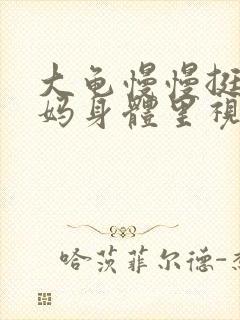 大龟慢慢挺
妈身體里視
哈茨菲尔德-杰